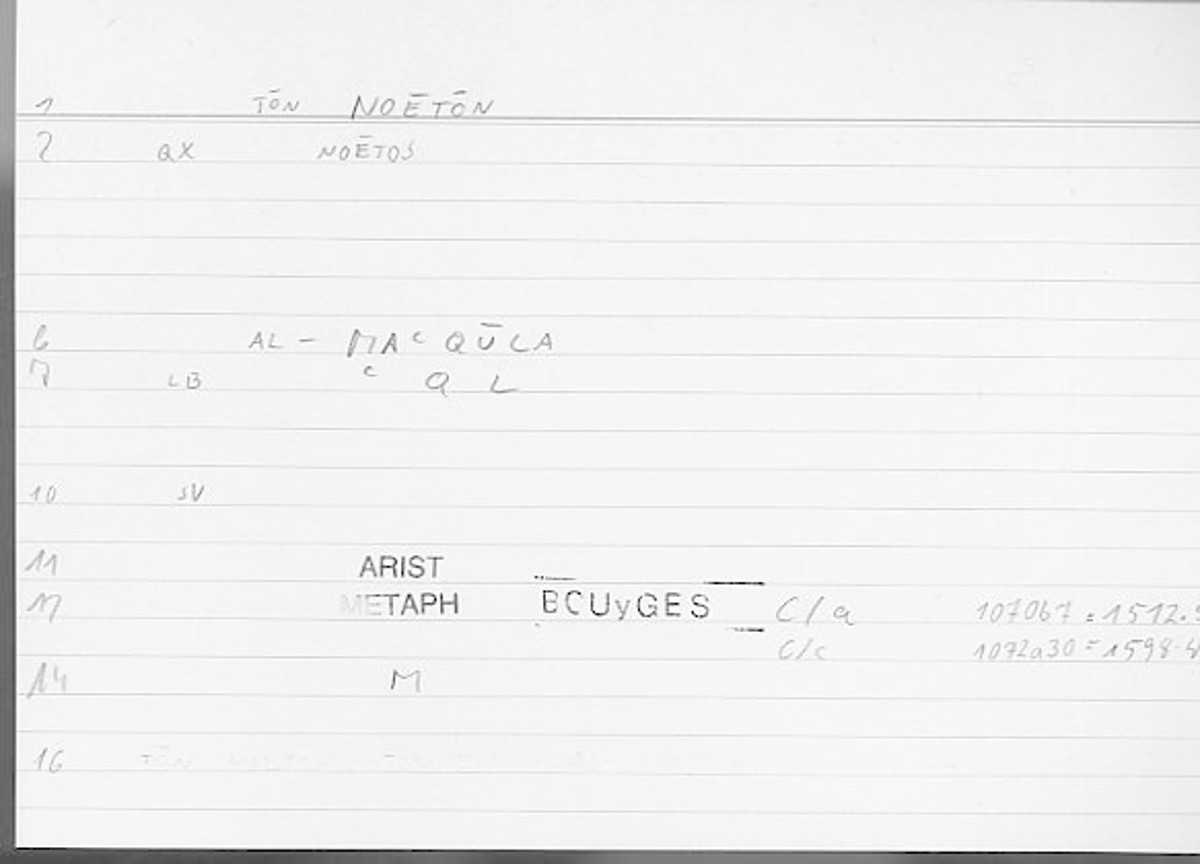 1 TŌN NOĒTŌN
2 QX NOĒTOS
6 AL - MAᶜQŪLA
7 LB ᶜ Q L
10 SV
11 ARIST
12 METAPH BOUyGES C/a 1070b7 = 1512.
C/c 1072a30 = 1598.4
14 M
16 TŌN